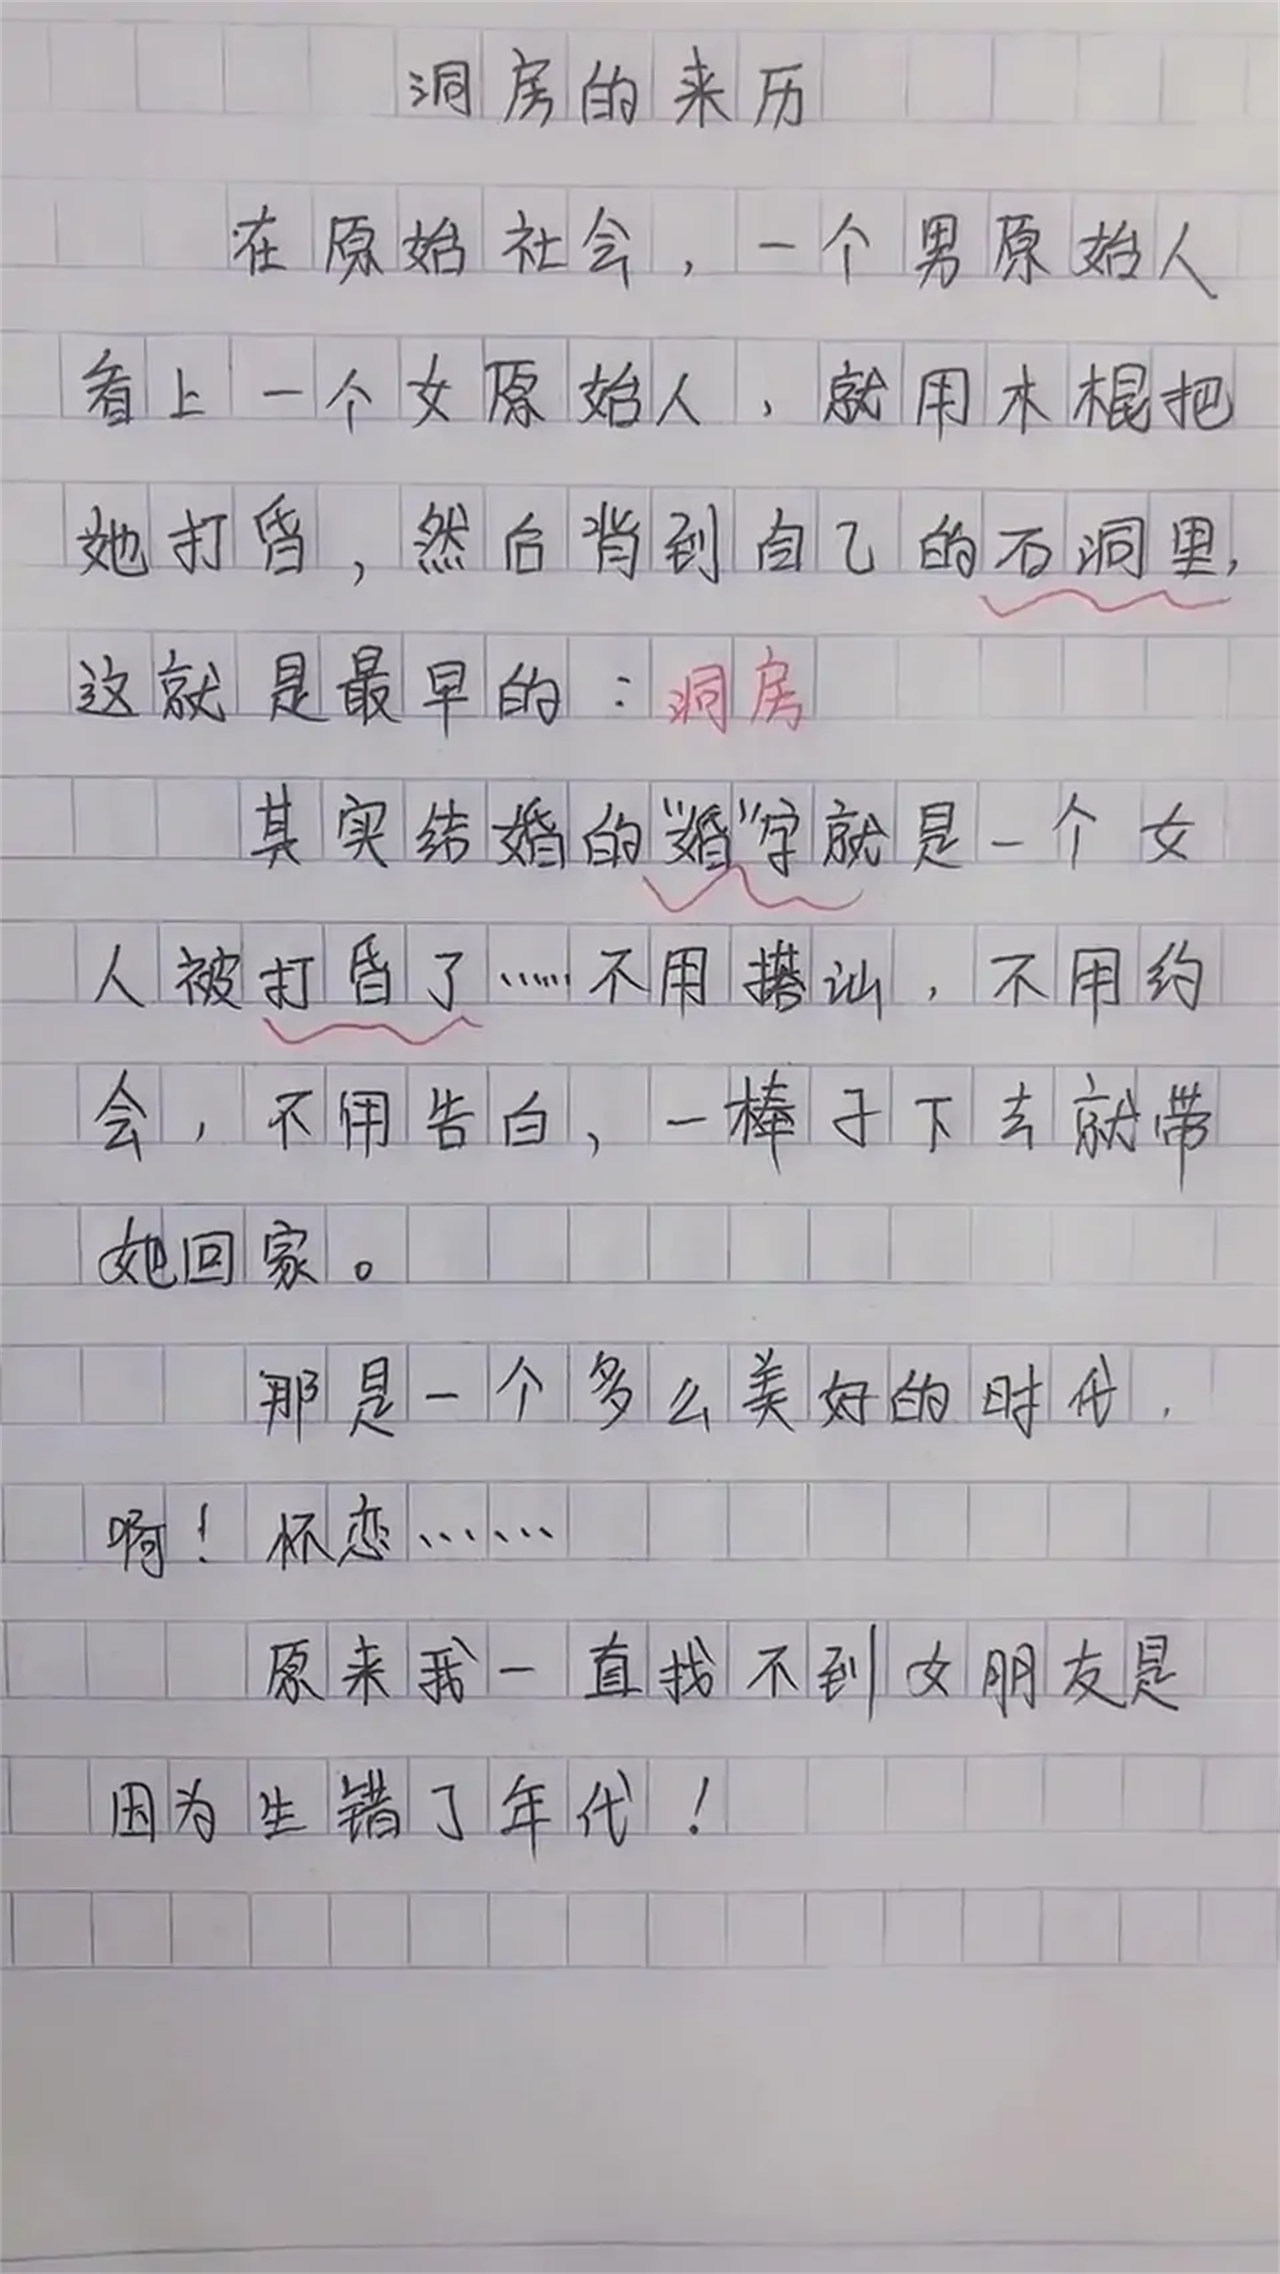 洞房的来历
在原始社会，一个男原始人
看上一个女原始人，就用木棍把
她打昏，然后背到自己的石洞里，
这就是最早的：洞房
其实结婚的“婚”字就是一个女
人被打昏了……不用搭讪，不用约
会，不用告白，一棒子下去就带
她回家。
那是一个多么美好的时代，
啊！怀恋……
原来我一直找不到女朋友是
因为生错了年代！